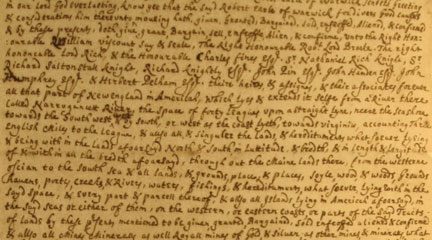 in our Lord God everlasting, Know yee that the said Robert Earle of Warwick for divers good causes
& considerations him thereunto moving hath given, Granted, Bargained, sold enfeoffed Aliened, & confirmed
& by these presents doth give, grant Bargain, sell enfeoff Alien, & confirme, unto the Right Hon:
William viscount Say & Seale, The Right Honourable Robt Lord Brooke. The right
honourable Lord Rich, & the honourable Charles fines Esqr Sr Nathaniel Rich Knight, Sr
Richard Saltonstall Knight, Richard Knightly Esqr John Pim Esqr John Hamden Esqr John
Humphrey Esqr & Herbert Pelham Esqr theire heires & assignes, & their associates forever
all that part of New England in America, which lyes & extends it selfe from a River there
Called Narroganset River, the space of forty leagues upon a straight lyne neere the sea shore
towards the Southwest, west & by south, or west as the coast lyeth, towards Virginia, accounting three
English Miles to the league, & also all & singuler the lands, & hereditaments what soever, lying
& being with in the lands aforesaid North & South in Latitude & bredth, & in length & Longitude
of & with in all the bredth aforesaid, through out the maine lands there, from the western
Ocean to the South sea & all lands & grounds, place, & places, soyle, wood & woods Grounds
havens, ports, creeks & Rivers, waters, fishings, & hereditaments, what soever, lying with in the
said space, & every part & parcell thereof: & also all Islands lying in America aforesaid, in
the said seas or either of them, on the western, or eastern coasts or parts of the said tracts
of lands by these presents, mentioned to be given granted Bargained, sold enfeoffed aliened & confirmed
& also all mines Mineralls as well Royall mines of Gold & silver, as other mines & mineralls, what